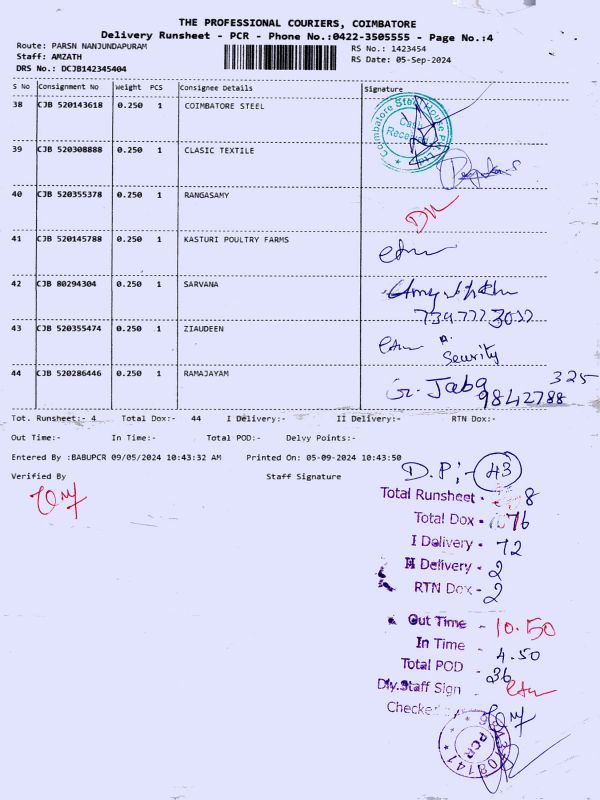 THE PROFESSIONAL COURIERS, COIMBATORE
Delivery Runsheet - PCR - Phone No.:0422-3505555 - Page No.:4
Route: PARSN NANJUNDAPURAM
Staff: AMZATH
DRS No.: DCJB142345404
RS No.: 1423454
RS Date: 05-Sep-2024
S No Consignment No Weight PCS Consignee Details Signature
38 CJB 520143618 0.250 1 COIMBATORE STEEL
39 CJB 520308888 0.250 1 CLASIC TEXTILE
40 CJB 520355378 0.250 1 RANGASAMY
41 CJB 520145788 0.250 1 KASTURI POULTRY FARMS
42 CJB 80294304 0.250 1 SARVANA
7397773032
43 CJB 520355474 0.250 1 ZIAUDEEN
Security
44 CJB 520286446 0.250 1 RAMAJAYAM
325
9842788
Tot. Runsheet:- 4 Total Dox:- 44 I Delivery:- II Delivery:- RTN Dox:-
Out Time:- In Time:- Total POD:- Delvy Points:-
Entered By :BABUPCR 09/05/2024 10:43:32 AM Printed On: 05-09-2024 10:43:50
Verified By Staff Signature
D.P:- 43
Total Runsheet - 8
Total Dox - 176
I Delivery - 72
II Delivery - 2
RTN Dox - 2
Out Time - 10.50
In Time - 4.50
Total POD - 36
Dly.Staff Sign -
PCR